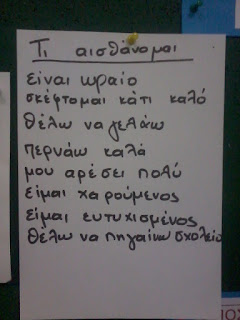 Τι αισθάνομαι
είναι ωραίο
σκέφτομαι κάτι καλό
θέλω να γελάω
περνάω καλά
μου αρέσει πολύ
είμαι χαρούμενος
είμαι ευτυχισμένος
θέλω να πηγαίνω σχολείο